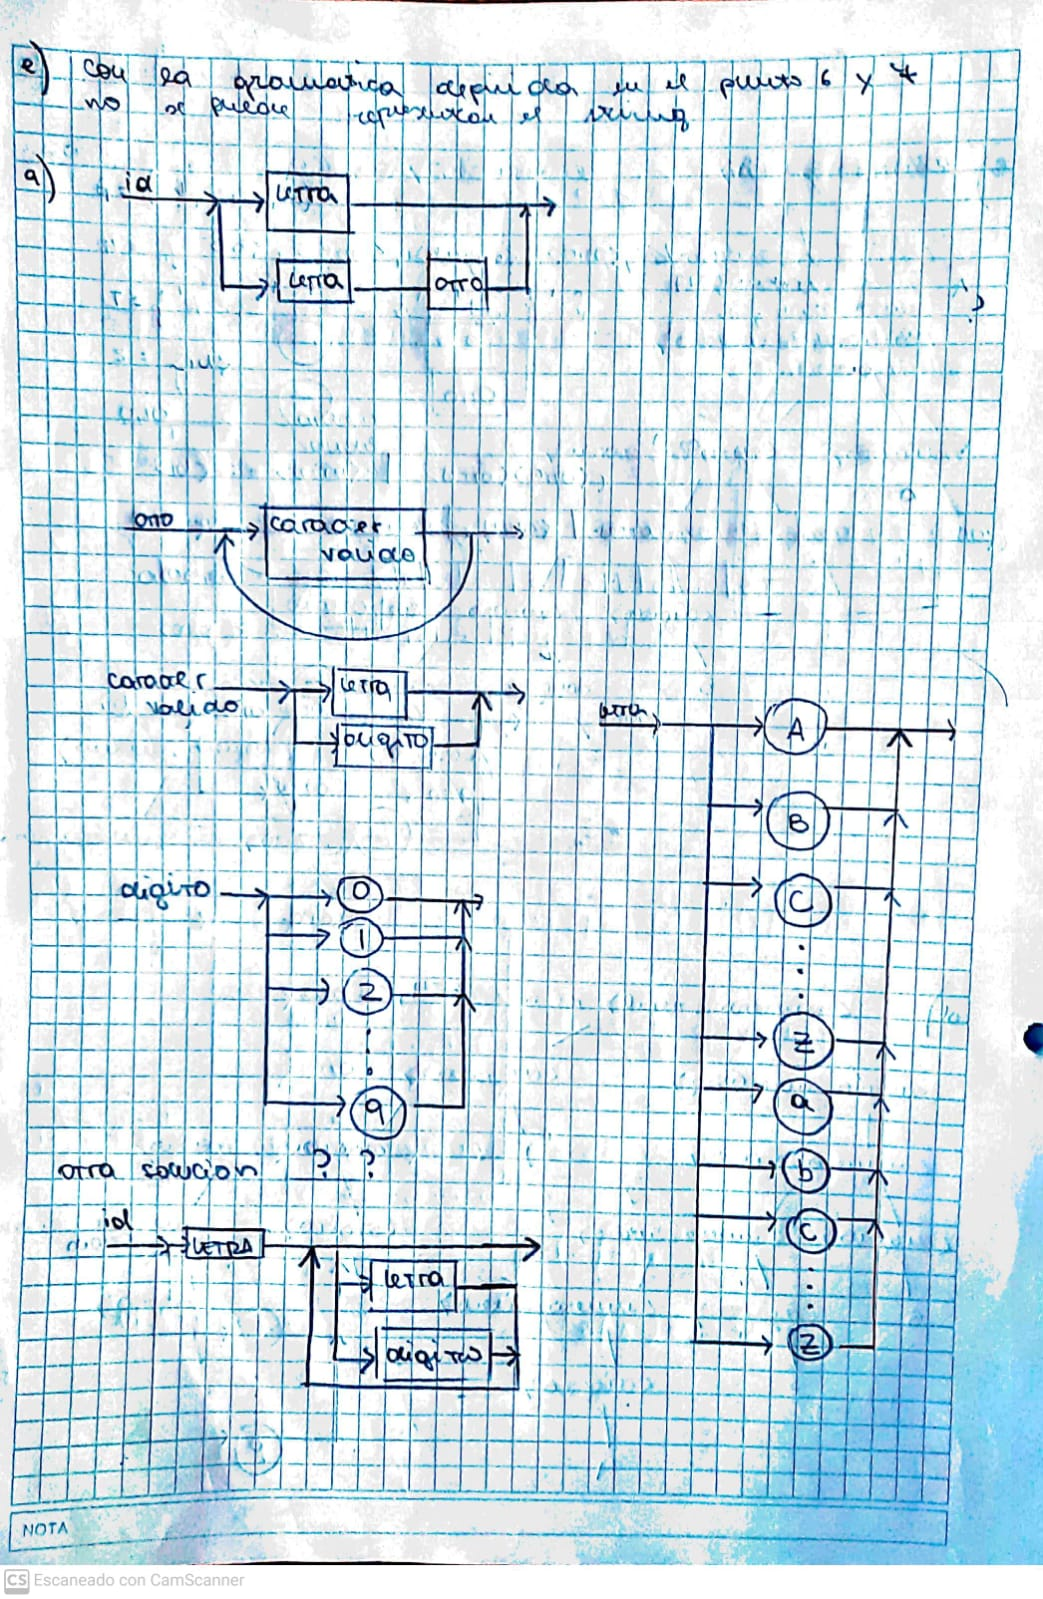 e) Con la gramatica definida en el punto 6 y 7
no se puede representar el string
a)
id
letra
letra
otro
otro
caracter
valido
caracter
valido
letra
digito
letra
A
B
C
Z
a
b
c
z
digito
0
1
2
9
otra solucion ? ?
id
LETRA
letra
digito
NOTA
CS Escaneado con CamScanner